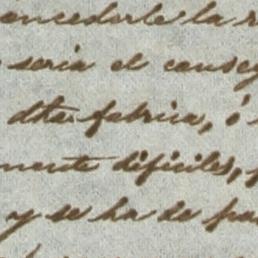 oncederle la r
seria el conseg
dha fabrica, ó
mente dificiles,
y se ha de pa